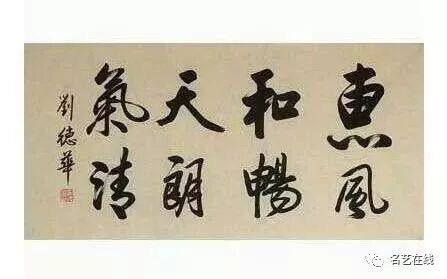 惠風
和暢
天朗
氣清
劉德華
名艺在线